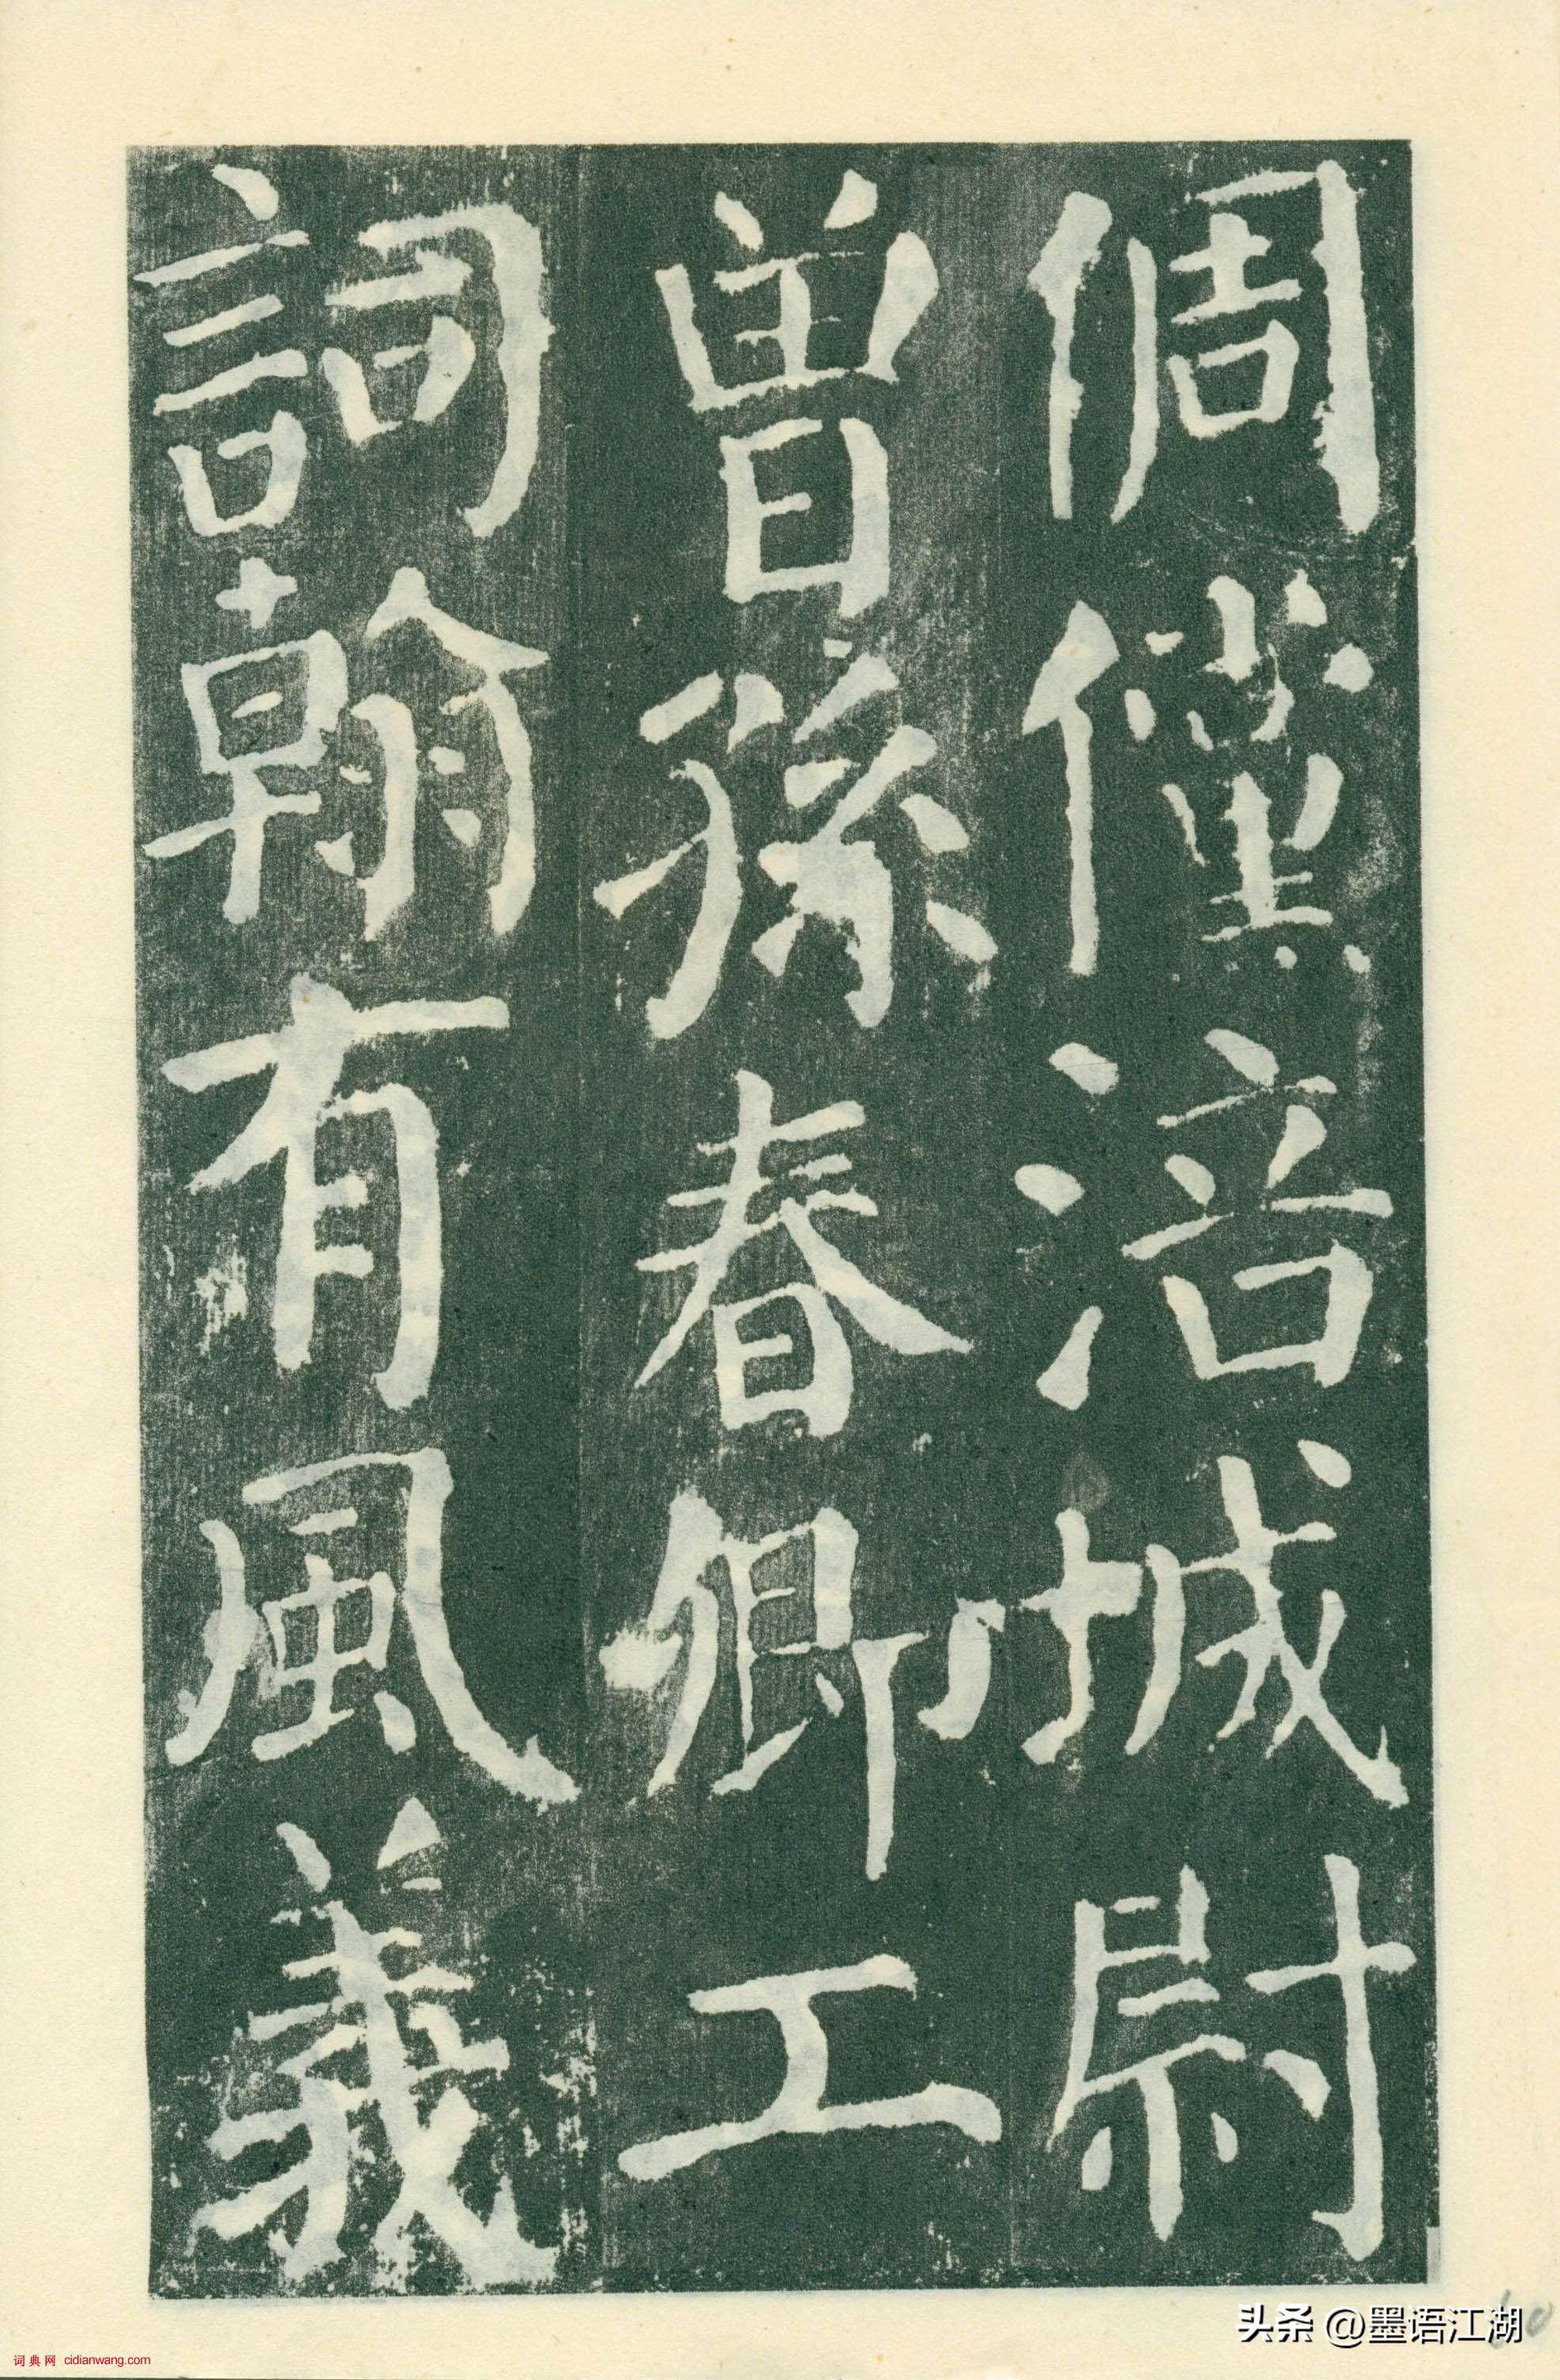 倜儻涪城尉
曾孫春卿工
詞翰有風義
头条 @墨语江湖
词典网 cidianwang.com